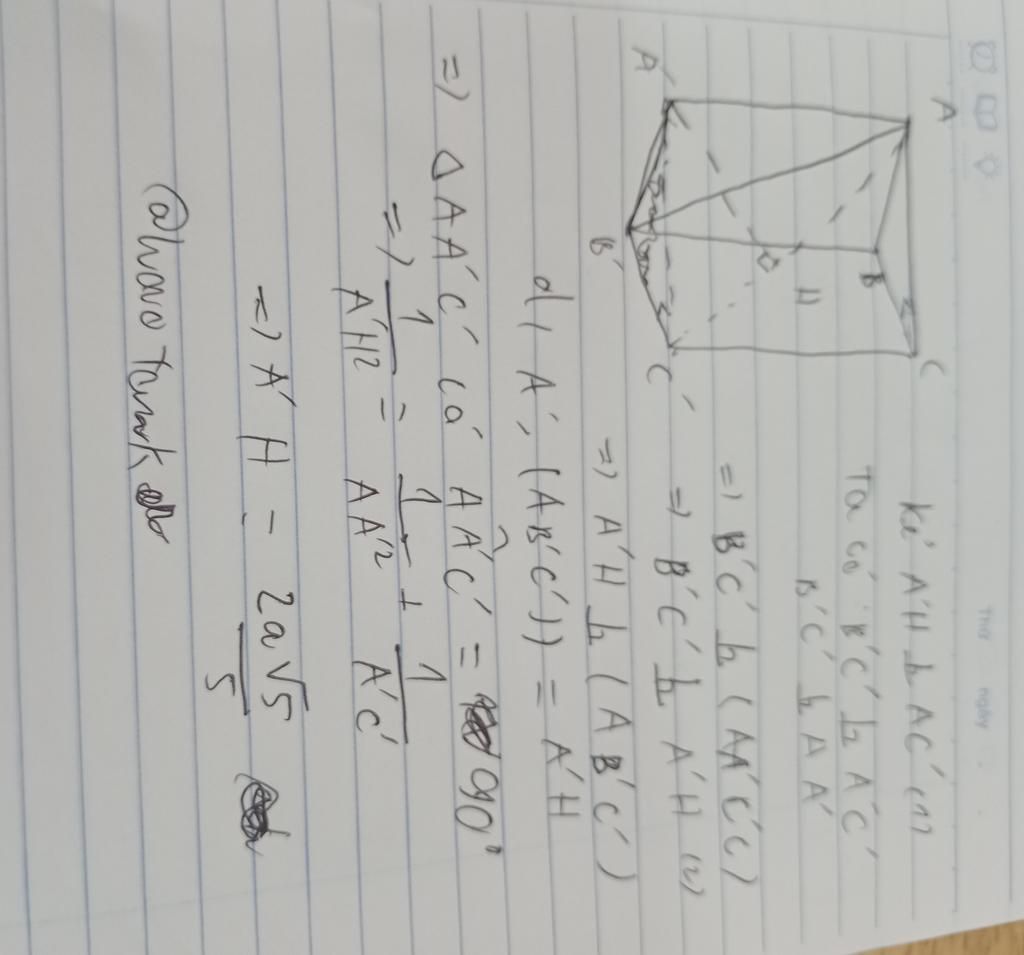 Thứ
ngày
A
C
B
H
A'
B'
C'
Kẻ A'H ⊥ AC' (1)
Ta có B'C' ⊥ A'C'
B'C' ⊥ AA'
=> B'C' ⊥ (AA'C'C)
=> B'C' ⊥ A'H (2)
=> A'H ⊥ (AB'C')
d(A', (AB'C')) = A'H
=> Δ AA'C' có AÂ'C' = 90°
=> 1/A'H2 = 1/AA'2 + 1/A'C'
=> A'H = 2a√5/5